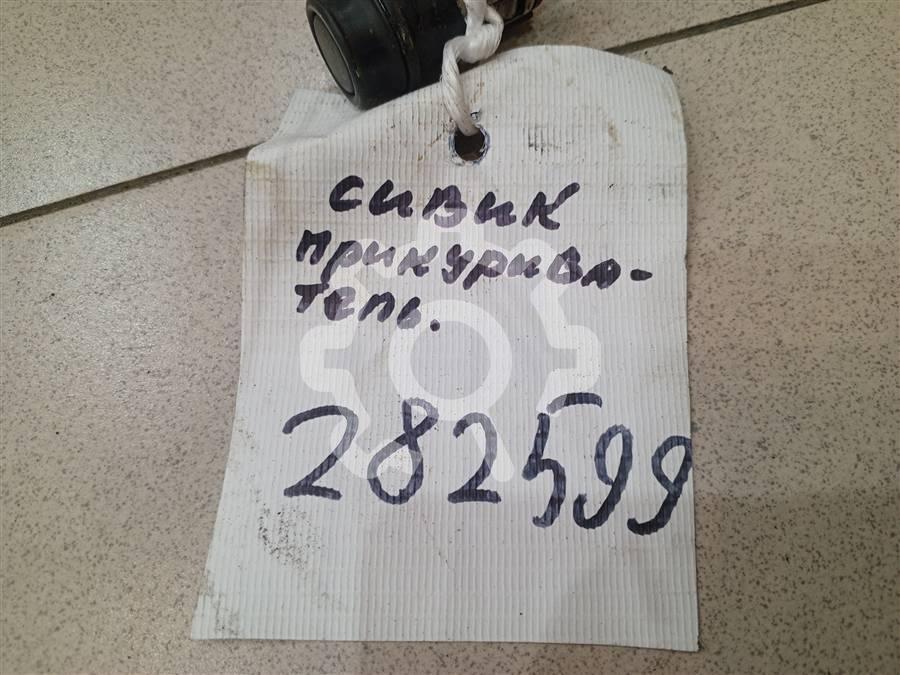 сивик
прикурива-
тель.
282599